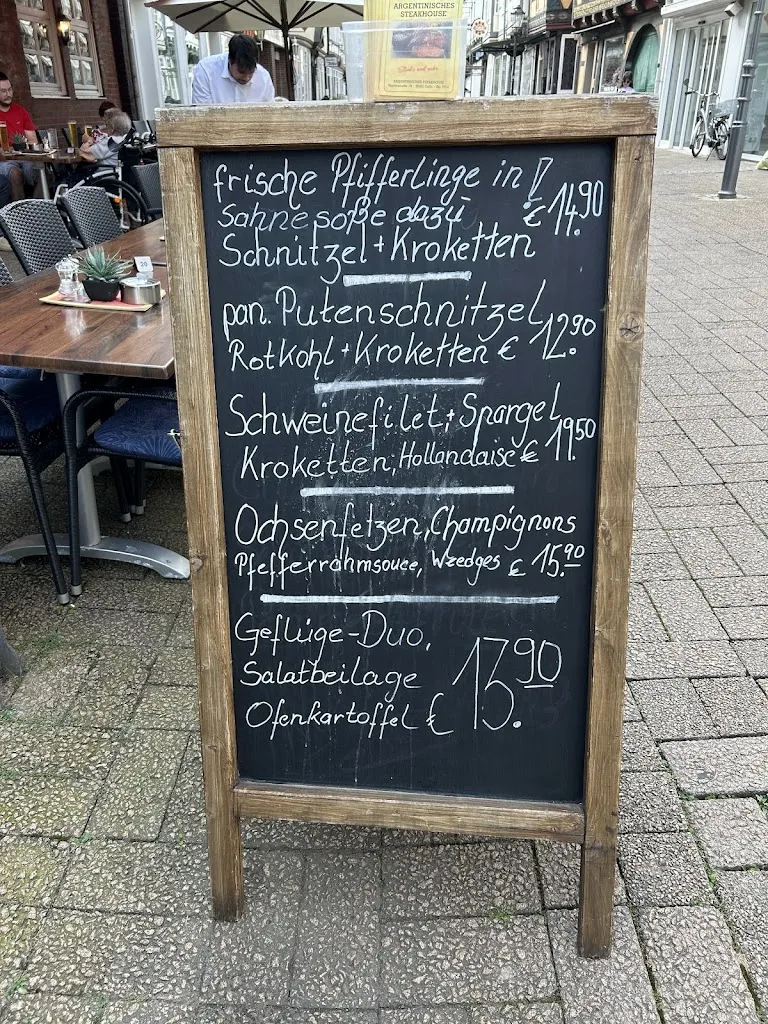 ARGENTINISCHES
STEAKHOUSE
frische Pfifferlinge in
Sahnesoße dazu € 14.90
Schnitzel + Kroketten
pan. Putenschnitzel
Rotkohl + Kroketten € 12.90
Schweinefilet + Spargel
Kroketten, Hollandaise € 19.50
Ochsenfetzen, Champignons
Pfefferrahmsouce, Weedges € 15.90
Geflüge-Duo,
Salatbeilage
Ofenkartoffel € 13.90
20